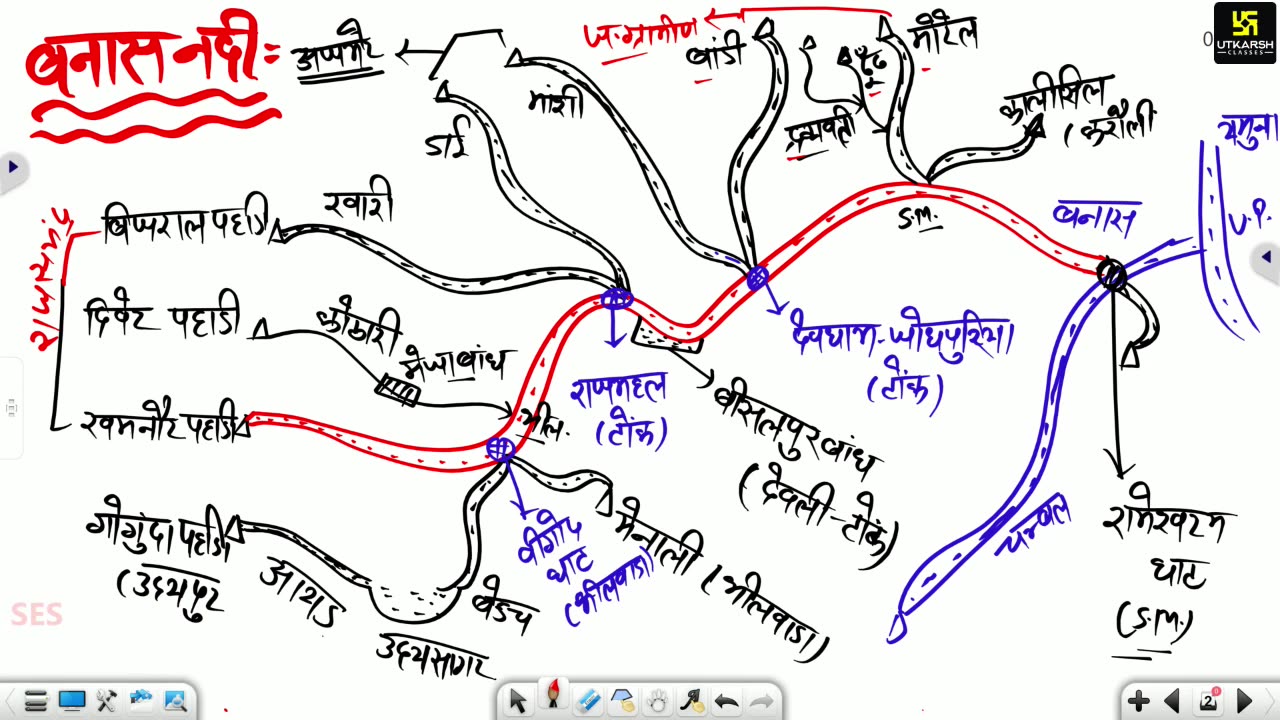 बनास नदी:-
अजमेर
ज.ग्रामीण
बांडी
मोरेल
मांशी
डाई
ढूंढ
द्रव्यवती
कालीसिल
(करौली
यमुना
U.P.
UTKARSH
CLASSES
बनास
S.M.
राजसमंद
बिजराल पहाडी
खारी
दिवेर पहाडी
कोठारी
मेजाबांध
खमनौर पहाडी
भील.
राजमहल
(टोंक)
देवधाम-जोधपुरिया
(टोंक)
बीसलपुर बांध
(देवली-टोंक)
गोगुंदा पहाडी
(उदयपुर
आयड
उदयसागर
बेडच
बीगोद
घाट
(भीलवाडा)
मेनाली (भीलवाडा)
चम्बल
रामेश्वरम
घाट
(S.M.)
SES
2